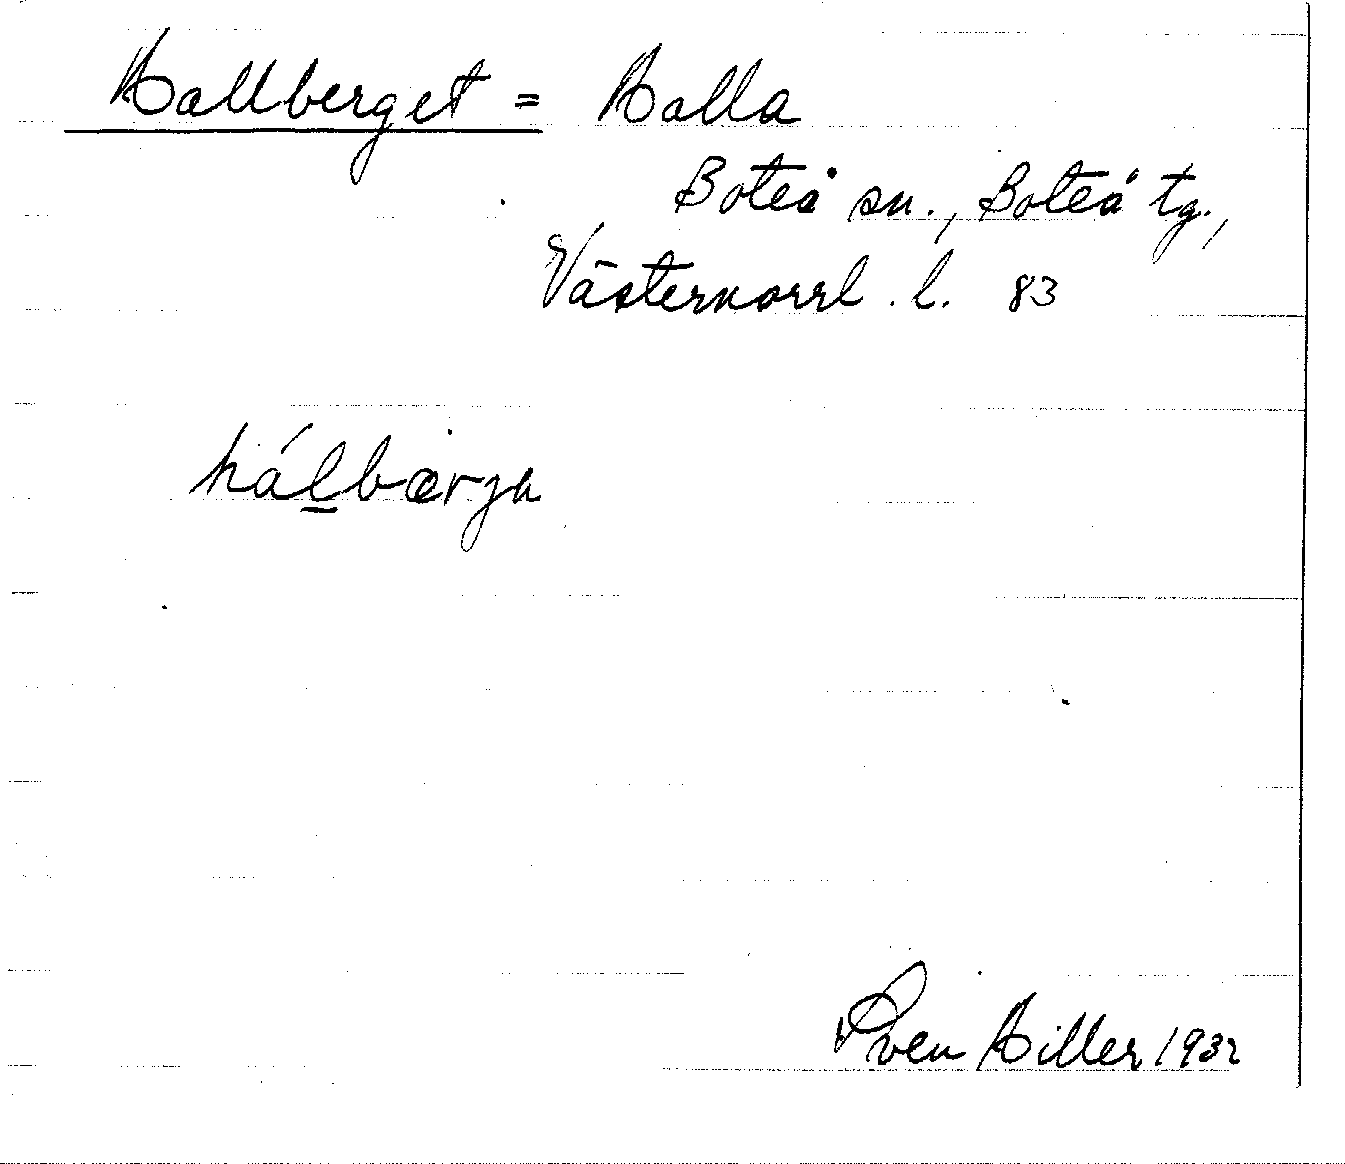 Hallberget = Halla
Boteå sn., Boteå tg.,
Västernorrl. l. 83
hálbærja
Sven Hiller 1932